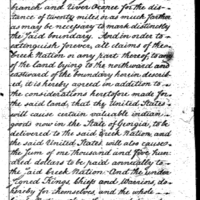 branch and River Oconee for the dis-
tance of twenty miles or as much farther
as may be necessary to mark distinctly
the said boundary. And in order to
extinguish forever, all claims of the
Creek Nation or any part thereof to any
of the land lying to the northward and
eastward of the boundary herein descri-
ed, it is hereby agreed in addition to
the considerations heretofore made for
the said land, that the United States
will cause certain valuable indian-
goods now in the State of Georgia, to be
delivered to the said Creek Nation, and
the said United States will also cause
the sum of one thousand and five hun-
dred dollars to be paid annually to
the said Creek Nation. And the under
signed Kings, Chiefs and Warriors, do
hereby for themselves and the whole